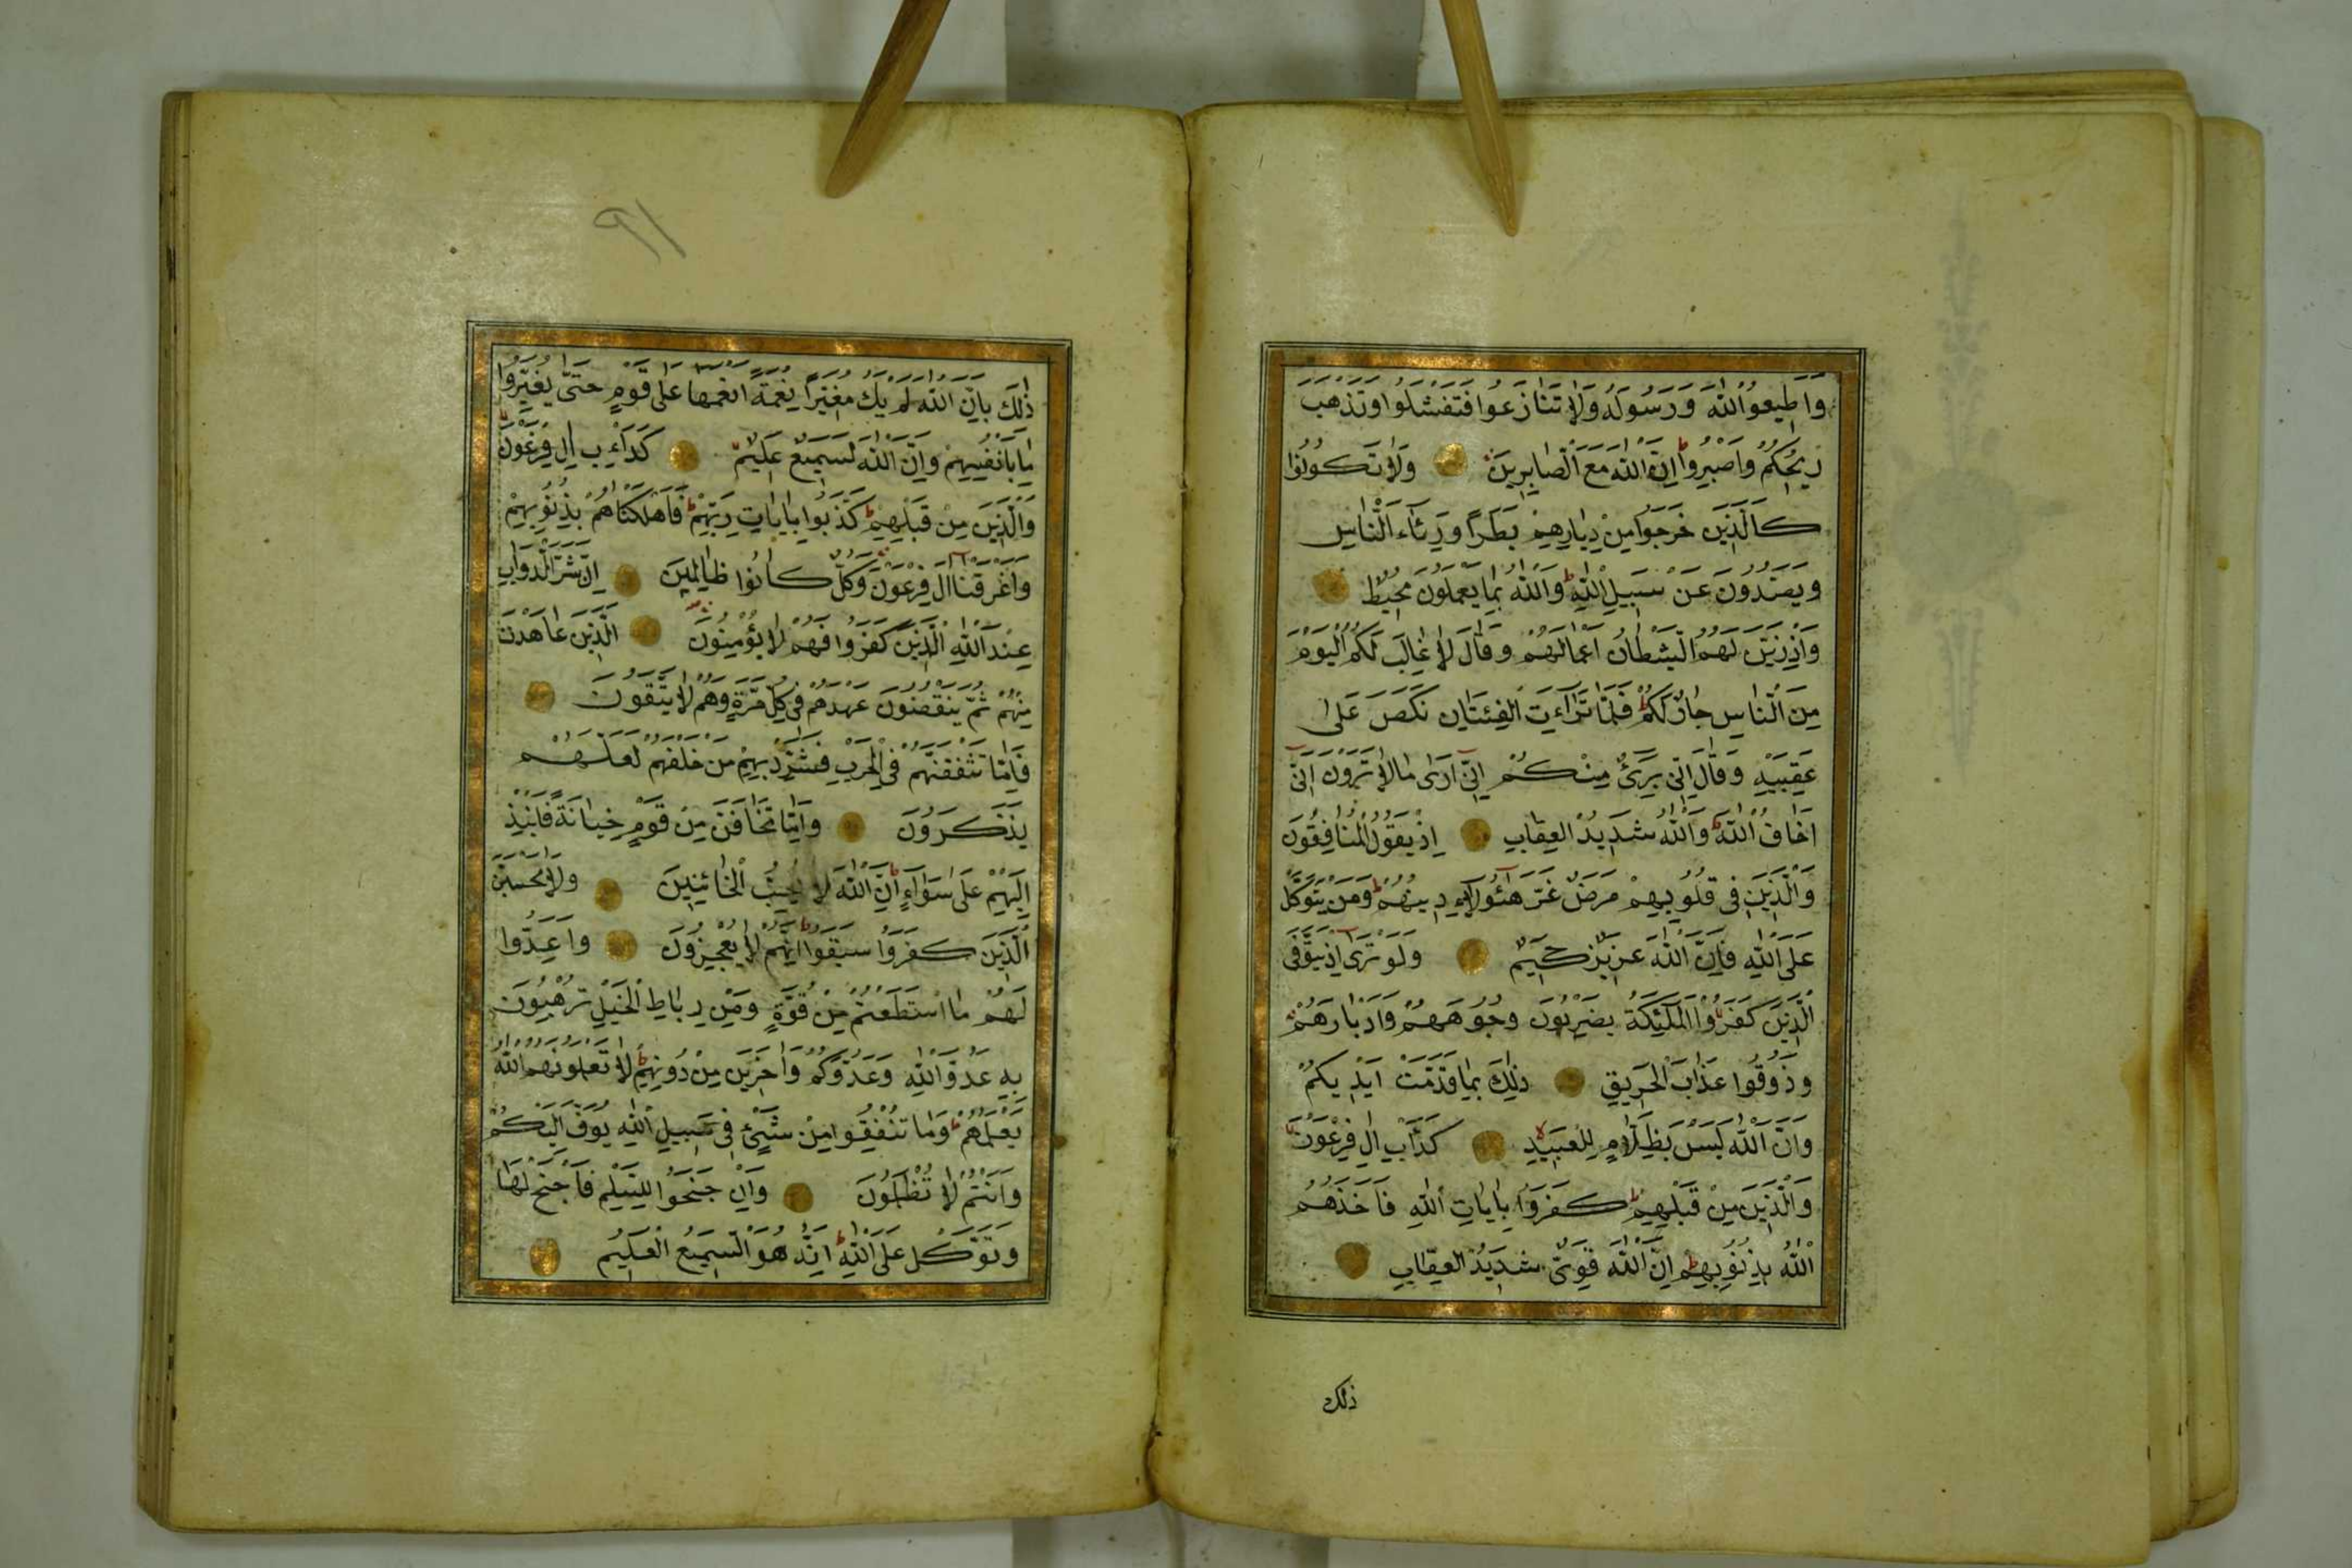 وَاَطِيعُوا اللّٰهَ وَرَسُولَهُ وَلَا تَنَازَعُوا فَتَفْشَلُوا وَتَذْهَبَ
رِيحُكُمْ وَاصْبِرُوا ط اِنَّ اللّٰهَ مَعَ الصَّابِرِينَ وَلَا تَكُونُوا
كَالَّذِينَ خَرَجُوا مِنْ دِيَارِهِمْ بَطَرًا وَرِئَاءَ النَّاسِ
وَيَصُدُّونَ عَنْ سَبِيلِ اللّٰهِ ط وَاللّٰهُ بِمَا يَعْمَلُونَ مُحِيطٌ
وَاِذْ زَيَّنَ لَهُمُ الشَّيْطَانُ اَعْمَالَهُمْ وَقَالَ لَا غَالِبَ لَكُمُ الْيَوْمَ
مِنَ النَّاسِ جَارٌ لَكُمْ ط فَلَمَّا تَرَاءَتِ الْفِئَتَانِ نَكَصَ عَلٰى
عَقِبَيْهِ وَقَالَ اِنِّى بَرِىءٌ مِنْكُمْ اِنِّى اَرٰى مَا لَا تَرَوْنَ اِنِّى
اَخَافُ اللّٰهَ ط وَاللّٰهُ شَدِيدُ الْعِقَابِ اِذْ يَقُولُ الْمُنَافِقُونَ
وَالَّذِينَ فِى قُلُوبِهِمْ مَرَضٌ غَرَّ هٰؤُلَاءِ دِينُهُمْ ط وَمَنْ يَتَوَكَّلْ
عَلَى اللّٰهِ فَاِنَّ اللّٰهَ عَزِيزٌ حَكِيمٌ وَلَوْ تَرٰى اِذْ يَتَوَفَّى
الَّذِينَ كَفَرُوا الْمَلٰئِكَةُ يَضْرِبُونَ وُجُوهَهُمْ وَاَدْبَارَهُمْ
وَذُوقُوا عَذَابَ الْحَرِيقِ ذٰلِكَ بِمَا قَدَّمَتْ اَيْدِيكُمْ
وَاَنَّ اللّٰهَ لَيْسَ بِظَلَّامٍ لِلْعَبِيدِ لا كَدَأْبِ اٰلِ فِرْعَوْنَ
وَالَّذِينَ مِنْ قَبْلِهِمْ ط كَفَرُوا بِاٰيَاتِ اللّٰهِ فَاَخَذَهُمُ
اللّٰهُ بِذُنُوبِهِمْ ط اِنَّ اللّٰهَ قَوِىٌّ شَدِيدُ الْعِقَابِ
ذلك
٩١
ذٰلِكَ بِاَنَّ اللّٰهَ لَمْ يَكُ مُغَيِّرًا نِعْمَةً اَنْعَمَهَا عَلٰى قَوْمٍ حَتّٰى يُغَيِّرُوا
مَا بِاَنْفُسِهِمْ وَاَنَّ اللّٰهَ لَسَمِيعٌ عَلِيمٌ كَدَاْبِ اٰلِ فِرْعَوْنَ
وَالَّذِينَ مِنْ قَبْلِهِمْ ط كَذَّبُوا بِاٰيَاتِ رَبِّهِمْ ط فَاَهْلَكْنَاهُمْ بِذُنُوبِهِمْ
وَاَغْرَقْنَا اٰلَ فِرْعَوْنَ وَكُلٌّ كَانُوا ظَالِمِينَ اِنَّ شَرَّ الدَّوَابِّ
عِنْدَ اللّٰهِ الَّذِينَ كَفَرُوا فَهُمْ لَا يُؤْمِنُونَ الَّذِينَ عَاهَدْتَ
مِنْهُمْ ثُمَّ يَنْقُضُونَ عَهْدَهُمْ فِى كُلِّ مَرَّةٍ وَهُمْ لَا يَتَّقُونَ
فَاِمَّا تَثْقَفَنَّهُمْ فِى الْحَرْبِ فَشَرِّدْ بِهِمْ مَنْ خَلْفَهُمْ لَعَلَّهُمْ
يَذَّكَّرُونَ وَاِمَّا تَخَافَنَّ مِنْ قَوْمٍ خِيَانَةً فَانْبِذْ
اِلَيْهِمْ عَلٰى سَوَاءٍ ط اِنَّ اللّٰهَ لَا يُحِبُّ الْخَائِنِينَ وَلَا تَحْسَبَنَّ
الَّذِينَ كَفَرُوا سَبَقُوا ط اِنَّهُمْ لَا يُعْجِزُونَ وَاَعِدُّوا
لَهُمْ مَا اسْتَطَعْتُمْ مِنْ قُوَّةٍ وَمِنْ رِبَاطِ الْخَيْلِ تُرْهِبُونَ
بِهِ عَدُوَّ اللّٰهِ وَعَدُوَّكُمْ وَاٰخَرِينَ مِنْ دُونِهِمْ ط لَا تَعْلَمُونَهُمْ اَللّٰهُ
يَعْلَمُهُمْ ط وَمَا تُنْفِقُوا مِنْ شَىْءٍ فِى سَبِيلِ اللّٰهِ يُوَفَّ اِلَيْكُمْ
وَاَنْتُمْ لَا تُظْلَمُونَ وَاِنْ جَنَحُوا لِلسَّلْمِ فَاجْنَحْ لَهَا
وَتَوَكَّلْ عَلَى اللّٰهِ ط اِنَّهُ هُوَ السَّمِيعُ الْعَلِيمُ